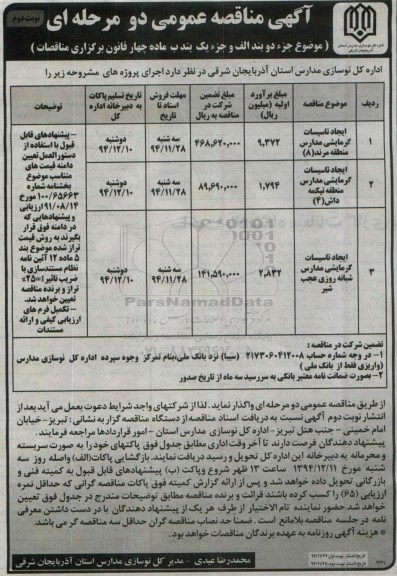 نوبت دوم
آگهی مناقصه عمومی دو مرحله ای
( موضوع جزء دو بند الف و جزء یک بند ب ماده چهار قانون برگزاری مناقصات )
اداره کل نوسازی مدارس استان آذربایجان شرقی در نظر دارد اجرای پروژه های مشروحه زیر را
ردیف
موضوع مناقصه
مبلغ برآورد اولیه (میلیون ریال)
مبلغ تضمین شرکت در مناقصه به ریال
مهلت فروش اسناد تا تاریخ
تاریخ تسلیم پاکات به دبیرخانه اداره کل
توضیحات
۱
ایجاد تاسیسات گرمایشی مدارس منطقه مرند(۸)
۹,۳۷۲
۴۶۸,۶۲۰,۰۰۰
سه شنبه ۹۴/۱۱/۲۸
دوشنبه ۹۴/۱۲/۱۰
۲
ایجاد تاسیسات گرمایشی مدارس منطقه تیکمه داش(۴)
۱,۷۹۴
۸۹,۶۹۰,۰۰۰
سه شنبه ۹۴/۱۱/۲۸
دوشنبه ۹۴/۱۲/۱۰
۳
ایجاد تاسیسات گرمایشی مدارس شبانه روزی عجب شیر
۲,۸۳۲
۱۴۱,۵۹۰,۰۰۰
سه شنبه ۹۴/۱۱/۲۸
دوشنبه ۹۴/۱۲/۱۰
– پیشنهادهای قابل
قبول با استفاده از
دستورالعمل تعیین
دامنه قیمت های
متناسب موضوع
بخشنامه شماره
۱۰۰/۶۵۶۶۳ مورخ
۹۱/۰۸/۱۴ ارزیابی
و پیشنهادهایی که
در دامنه فوق قرار
بگیرند به روش قیمت
تراز شده موضوع بند
۵ ماده ۱۲ آئین نامه
نظام مستندسازی با
ضریب تاثیر i=۲۵%
تراز و برنده مناقصه
تعیین خواهد شد.
– تکمیل فرم های
ارزیابی کیفی و ارائه
مستندات
ParsNamadData
تضمین شرکت در مناقصه :
۱– در وجه شماره حساب ۲۱۷۳۰۶۰۴۱۲۰۰۸ (سیبا) نزد بانک ملی بنام تمرکز وجوه سپرده اداره کل نوسازی مدارس
(واریزی فقط از بانک ملی )
۲– بصورت ضمانت نامه معتبر بانکی به سررسید سه ماه از تاریخ صدور
از طریق مناقصه عمومی دو مرحله ای واگذار نماید. لذا از شرکتهای واجد شرایط دعوت بعمل می آید بعد از
انتشار نوبت دوم آگهی نسبت به دریافت اسناد مناقصه از دستگاه مناقصه گزار به نشانی : تبریز – خیابان
امام خمینی – جنب هتل تبریز – اداره کل نوسازی مدارس استان – امور قراردادها مراجعه فرمایند.
پیشنهاد دهندگان فرصت دارند تا آخر وقت اداری مطابق جدول فوق پاکتهای خود را به صورت سربسته
و محرمانه به دبیرخانه این اداره کل تحویل و رسید دریافت نمایند. بازگشایی پاکات(الف) واصله روز سه
شنبه مورخ ۱۳۹۴/۱۲/۱۱ ساعت ۱۳ ظهر شروع وپاکت (ب) پیشنهادهای قابل قبول به کمیته فنی و
بازرگانی تحویل داده خواهد شد و پس از ارائه گزارش کمیته فوق پاکات مناقصه گرانی که حداقل نمره
ارزیابی (۶۵) را کسب کرده باشند قرائت و برنده مناقصه مطابق توضیحات مندرج در جدول فوق تعیین
خواهد شد. حضور نماینده تام الاختیار از طرف هر یک از پیشنهاد دهندگان با در دست داشتن معرفی
نامه در جلسه مناقصه بلامانع است. ضمنا حد نصاب مناقصه گران حداقل سه مناقصه گر می باشد.
هزینه آگهی روزنامه به عهده برندگان مناقصات خواهد بود.
محمدرضا عیدی – مدیر کل نوسازی مدارس استان آذربایجان شرقی